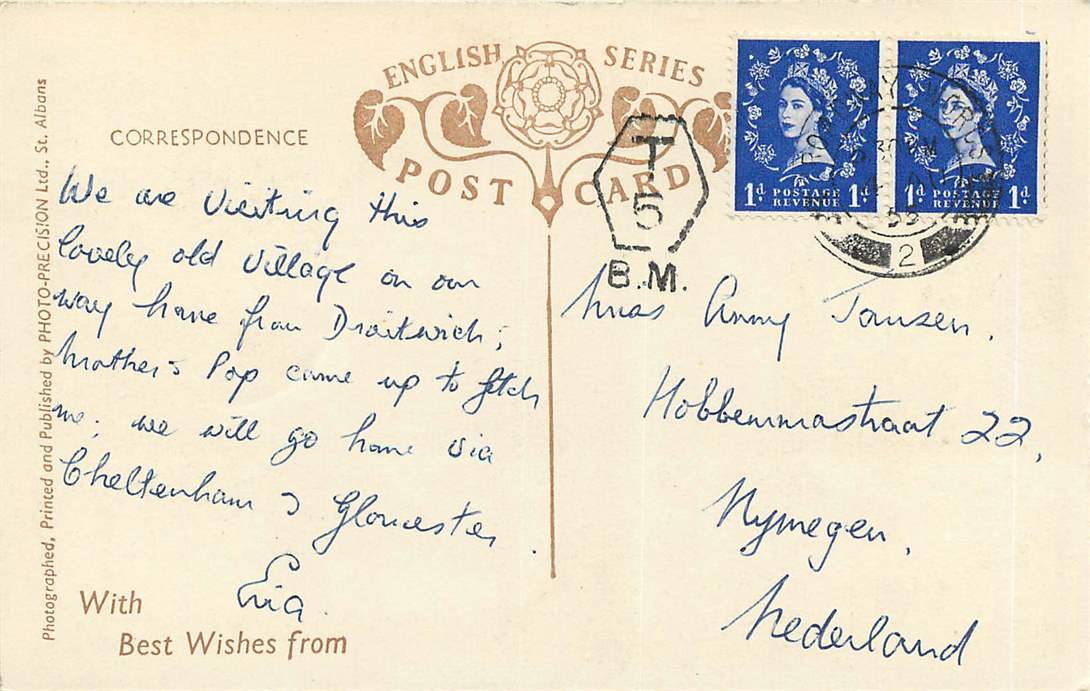 ENGLISH SERIES
POST CARD
CORRESPONDENCE
Photographed, Printed and Published by PHOTO-PRECISION Ltd., St. Albans
We are visiting this
lovely old village on our
way home from Droitwich;
Mother & Pop came up to fetch
me; we will go home via
Cheltenham & Gloucester.
With
Best Wishes from
T
5
B.M.
1d POSTAGE REVENUE 1d
1d POSTAGE REVENUE 1d
2
Miss Anny Jansen.
Hobbemastraat 22,
Nymegen,
Nederland